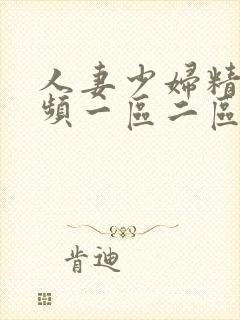 人妻少婦精
頻一區二區
肯迪